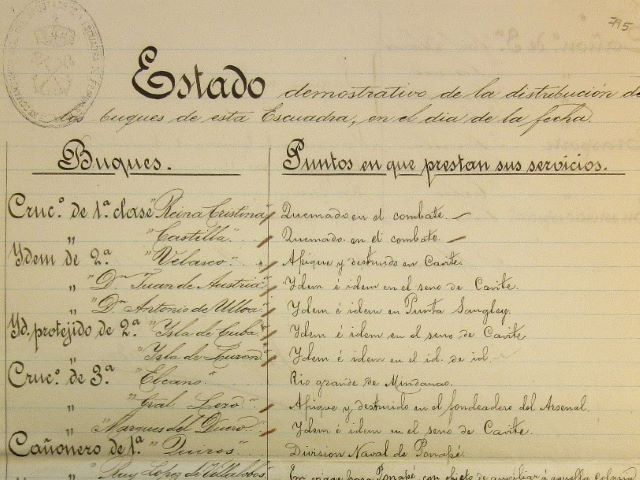 795
Estado demostrativo de la distribución de
los buques de esta Escuadra, en el día de la fecha
Buques. Puntos en que prestan sus servicios.
Cruc.º de 1.ª clase "Reina Cristina" Quemado en el combate.
" "Castilla" Quemado en el combate
Ydem de 2.ª "Velasco" Afique y destruido en Cavite
" "D.n Juan de Austria" Ydem é idem en el seno de Cavite.
" "D.n Antonio de Ulloa" Ydem é idem en Punta Sangley.
Yd. protejido de 2.ª "Isla de Cuba" Ydem é idem en el seno de Cavite
" "Isla de Luzón" Ydem é idem en el id. de id.
Cruc.º de 3.ª "Elcano" Rio grande de Mindanao.
" "Gral. Lezo" Afique y destruido en el fondeadero del Arsenal.
" "Marques del Duero" Ydem é idem en el seno de Cavite.
Cañonero de 1.ª "Quiros" Division Naval de Ponapé.
" "Ruy Lopez de Villalobos